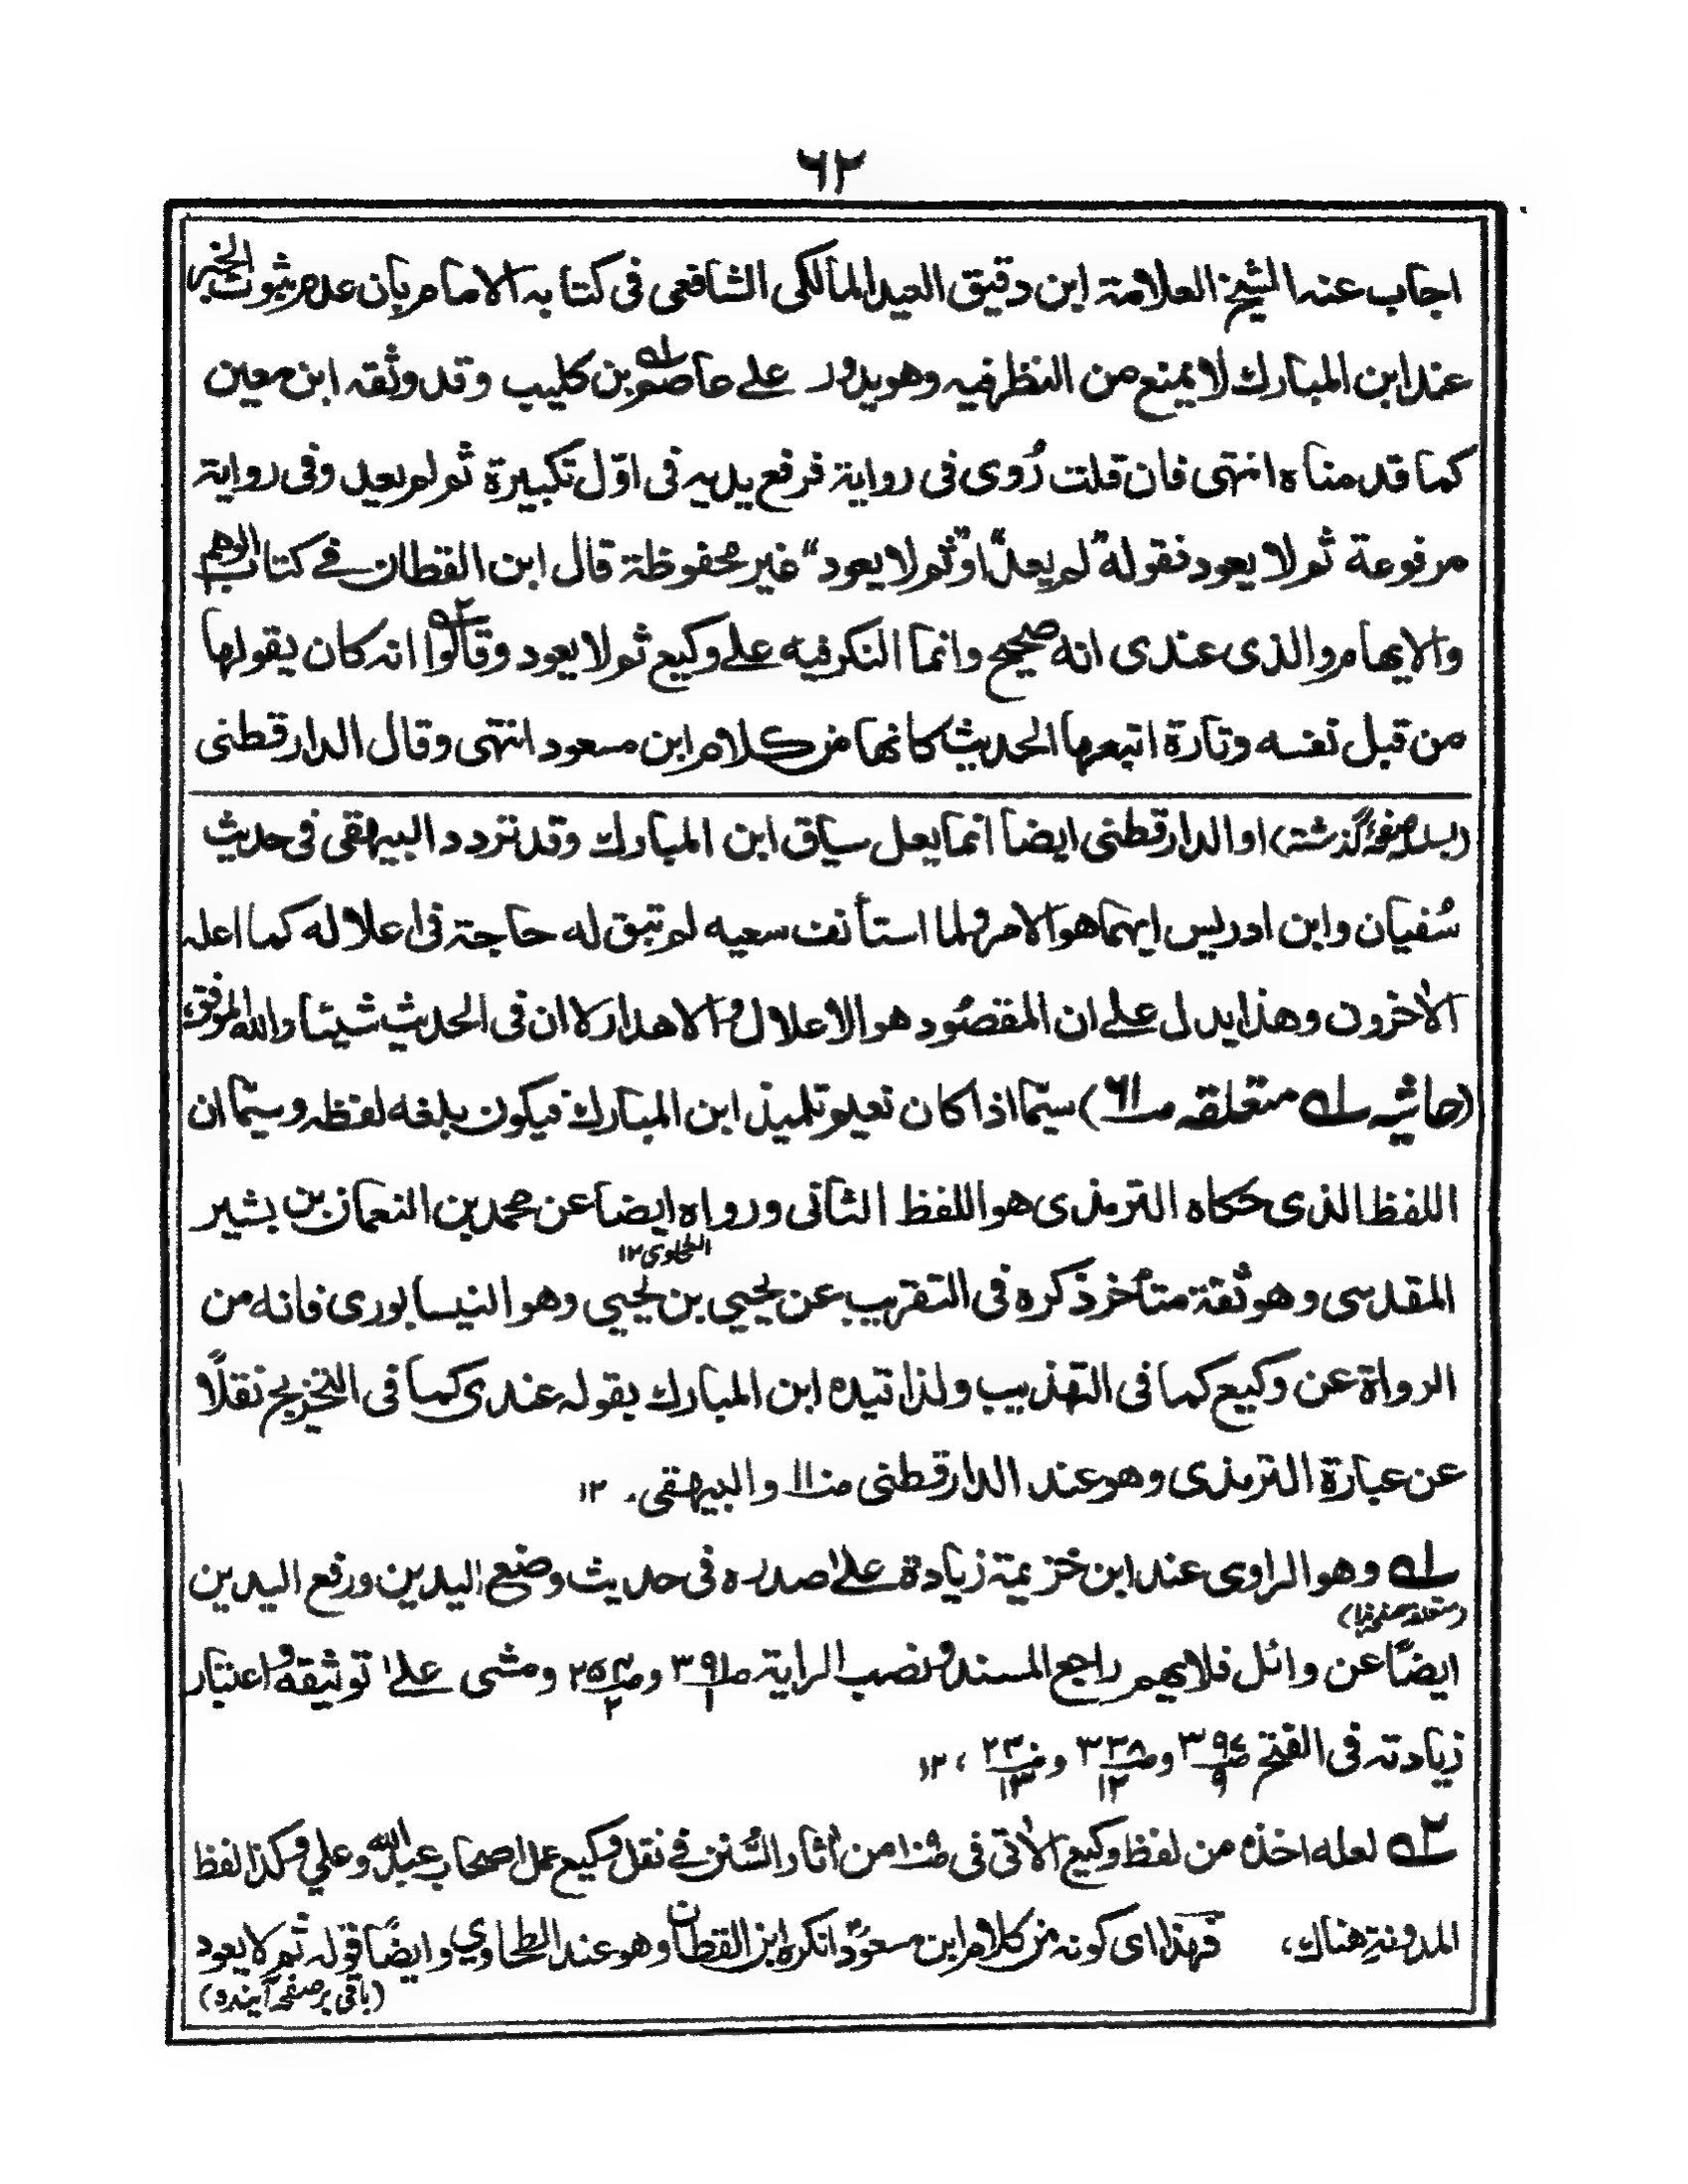 ٦٢
اجاب عنه الشيخ العلامة ابن دقيق العيد المالكى الشافعى فى كتابه الامام بان عدم ثبوت الخبر
عند ابن المبارك لا يمنع من النظر فيه وهو يدور علے عاصم بن كليب وقد وثقه ابن معين
كما قدمناه انتهى فان قلت رُوى فى رواية فرفع يديه فى اوّل تكبيرة ثم لم يعد وفى رواية
مرفوعة ثم لا يعود فقوله "لم يعد" او "ثم لا يعود" غير محفوظة قال ابن القطان فے كتاب الوهم
والايهام والذى عندى انه صحيح وانما النكر فيه علے وكيع ثم لا يعود وقالوا ٢ه انه كان يقولها
من قبل نفسه وتارة اتبعها الحديث كانها من كلام ابن مسعود انتهى وقال الدارقطنى
(بسلسلہ صفحۂ گذشتہ) او الدارقطنى ايضا انما يعل سياق ابن المبارك وقد تردد البيهقى فى حديث
سُفيان وابن ادريس ايهما هو الامر ولما استأنف سعيه لم تبق له حاجة فى اعلاله كما اعله
الاٰخرون وهذا يدل علے ان المقصُود هو الاعلال والاهدار لا ان فى الحديث شيئا والله الموفق،
(حاشیہ لے متعلقہ صـ٦١) سيّما اذا كان نعيم تلميذ ابن المبارك فيكون بلغه لفظه وسيّما ان
اللفظ الذى حكاه الترمذى هو اللفظ الثانى ورواه ايضا عن محمد بن النعمان بن بشير
الطحاوى ١٢
المقدسى وهو ثقة متأخر ذكره فى التقريب عن يحيي بن يحيي وهو النيسابورى فانه من
الرواة عن وكيع كما فى التهذيب ولذا قيده ابن المبارك بقوله عندى كما فى التخريج نقلًا
عن عبارة الترمذى وهو عند الدارقطنى صـ١١ والبيهقى۔ ١٢
لے وهو الراوى عند ابن خزيمة زيادة علےٰ صدره فى حديث وضع اليدين ورفع اليدين
(متعلقہ صفحہ ہذا)
ايضًا عن وائل فلا يهم راجع المسند ونصب الراية صـ٣٩/١ وصـ٢٥٤/٢ ومشى علےٰ توثيقه واعتبار
زيادته فى الفتح صـ٣٩٧/٩ وصـ٣٣٨/١٢ وصـ٢٣/١٣ ، ١٢
٢ه لعله اخذه من لفظ وكيع الاٰتى فى صـ١٠٩ من اٰثار السُنن فے نقل وكيع عمل اصحاب عبد الله وعلي وكذا لفظ
المدونة هناك، فهذا اى كونه من كلام ابن مسعودؓ انكره ابن القطان وهو عند الطحاوي وايضًا قوله ثم لا يعود
(باقی بر صفحہ آیندہ)